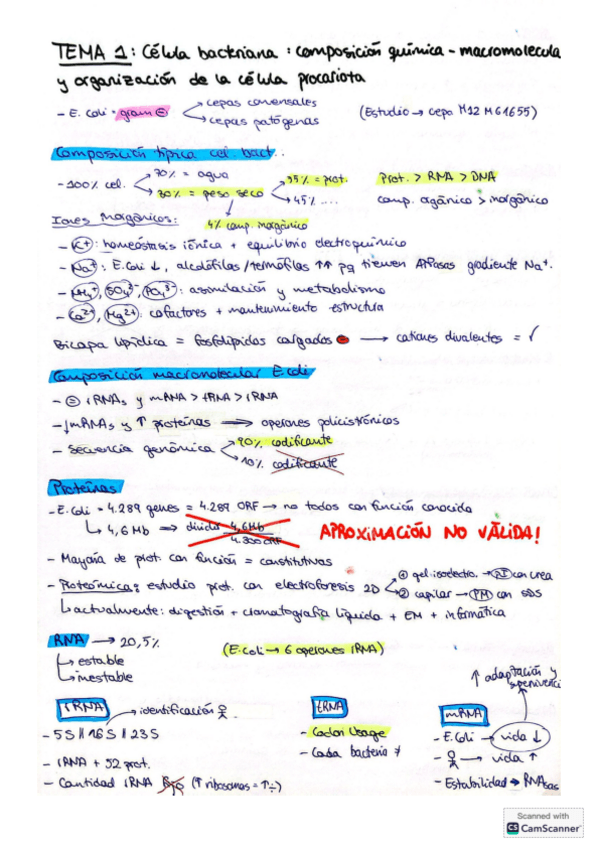 TEMA 1: Célula bacteriana: composición química - macromolecula
y organización de la célula procariota
- E. Coli = gram ⊖ → cepas comensales (Estudio → cepa K12 MG1655)
→ cepas patógenas
Composición típica cel. bact.:
- 100% cel. → 70% = agua
→ 30% = peso seco → 55% = prot. Prot. > RNA > DNA
→ 45% .... comp. orgánico > inorgánico
4% comp. inorgánico
Iones inorgánicos:
- K+: homeóstasis iónica + equilibrio electroquímico
- Na+: E. Coli ↓, alcalófilas/termófilas ↑↑ pq tienen ATPasas gradiente Na+.
- NH4+, SO4 2-, PO4 3-: asimilación y metabolismo
- Ca2+, Mg2+: cofactores + mantenimiento estructura
Bicapa lipídica = fosfolípidos cargados ⊖ → cationes divalentes = ✓
Composición macromolecular E. coli
- = rRNAs y mRNA > tRNA > rRNA
- ↓mRNAs y ↑ proteínas ⟹ operones policistrónicos
- Secuencia genómica → 90% codificante
→ 10% codificante
Proteínas
- E. Coli = 4.289 genes = 4.289 ORF → no todos con función conocida
↳ 4,6 Mb ⟹ dividir 4,6Mb APROXIMACIÓN NO VÁLIDA!
4.300 ORF
- Mayoría de prot. con función = constitutivas
- Proteómica: estudio prot. con electroforesis 2D → ① gel: isoelectro. → PI con urea
→ ② capilar → PM con SDS
↳ actualmente: digestión + cromatografía líquida + EM + informática
RNA → 20,5% (E. Coli → 6 operones rRNA)
↳ estable
↳ inestable
↑ adaptación y
supervivenci
rRNA → identificación
tRNA
mRNA
- 5S // 16S // 23S
- Codon Usage
- E. Coli → vida ↓
- Cada bacteria ≠
→ vida ↑
- rRNA + 52 prot.
- Cantidad rRNA (↑ ribosomas = ↑÷)
- Estabilidad → RNAsas
Scanned with
CS CamScanner